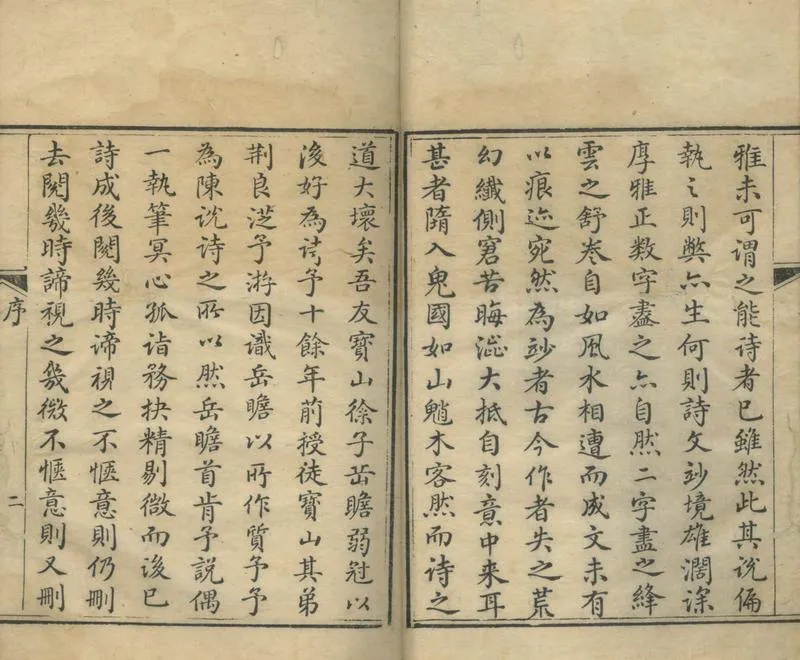 雅未可謂之能詩者已雖然此其說偏
執之則弊亦生何則詩文妙境雄濶深
厚雅正数字盡之亦自然二字盡之絳
雲之舒卷自如風水相遭而成文未有
以痕迹宛然為妙者古今作者失之荒
幻纖側窘苦晦澁大抵自刻意中来耳
甚者隋入鬼國如山魈木客然而诗之
道大壞矣吾友寳山徐子岳瞻弱冠以
後好為诗予十餘年前授徒寳山其弟
荆良從予游因識岳瞻以所作質予予
為陳说诗之所以然岳瞻首肯予説偶
一執筆冥心孤詣務抉精剔微而後已
詩成後閱幾時諦視之不愜意則仍刪
去閱幾時諦視之幾微不愜意則又刪
序
二